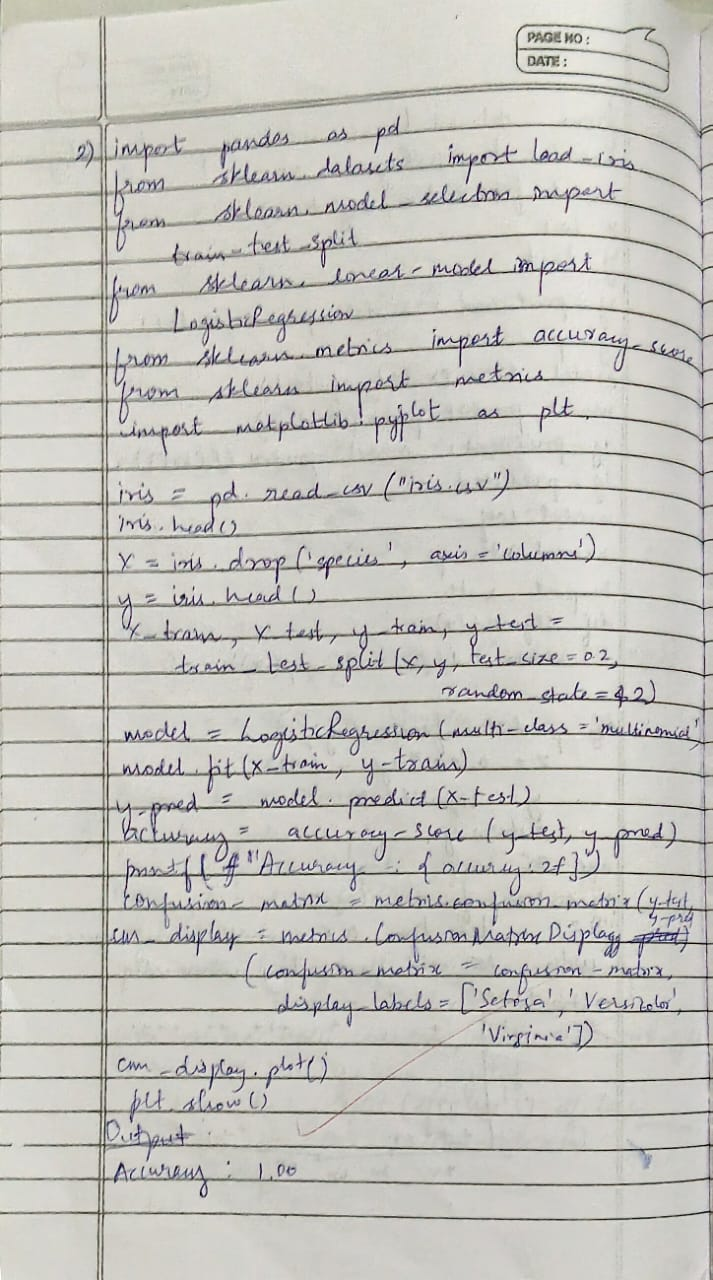 PAGE NO :
DATE :
2) import pandas as pd
from sklearn. datasets import load-iris
from sklearn. model-selection import
train-test-split
from sklearn. linear-model import
LogisticRegression
from sklearn. metrics import accuracy-score
from sklearn import metrics
import matplotlib. pyplot as plt.
iris = pd. read-csv ("iris.csv")
iris. head()
X = iris. drop ('species', axis = 'columns')
y = iris. head()
X-train, X-test, y-train, y-test =
train-test-split (X, y, test-size = 0.2,
random-state = 42)
model = LogisticRegression (multi-class = 'multinomial')
model. fit (X-train, y-train)
y-pred = model. predict (X-test)
accuracy = accuracy-score (y-test, y-pred)
print( f "Accuracy : { accuracy: 2f}")
confusion- matrix = metrics.confusion-matrix (y-test,
y-pred
cm- display = metrics. ConfusionMatrixDisplay
(confusion-matrix = confusion-matrix,
display-labels = ['Setosa', 'Versicolor',
'Virginia'])
cm-display. plot()
plt. show()
Output :
Accuracy : 1.00